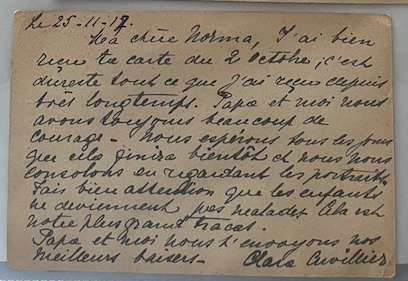 Le 25-11-17.
Ma chère Norma, J'ai bien
reçu ta carte du 2 Octobre; c'est
du reste tout ce que j'ai reçu depuis
très longtemps. Papa et moi nous
avons toujours beaucoup de
courage - nous espérons tous les jours
que cela finira bientôt et nous nous
consolons en regardant les portraits.
Fais bien attention que les enfants
ne deviennent pas malades. Cela est
notre plus grand tracas.
Papa et moi nous t'envoyons nos
meilleurs baisers - Clara Cuvillier